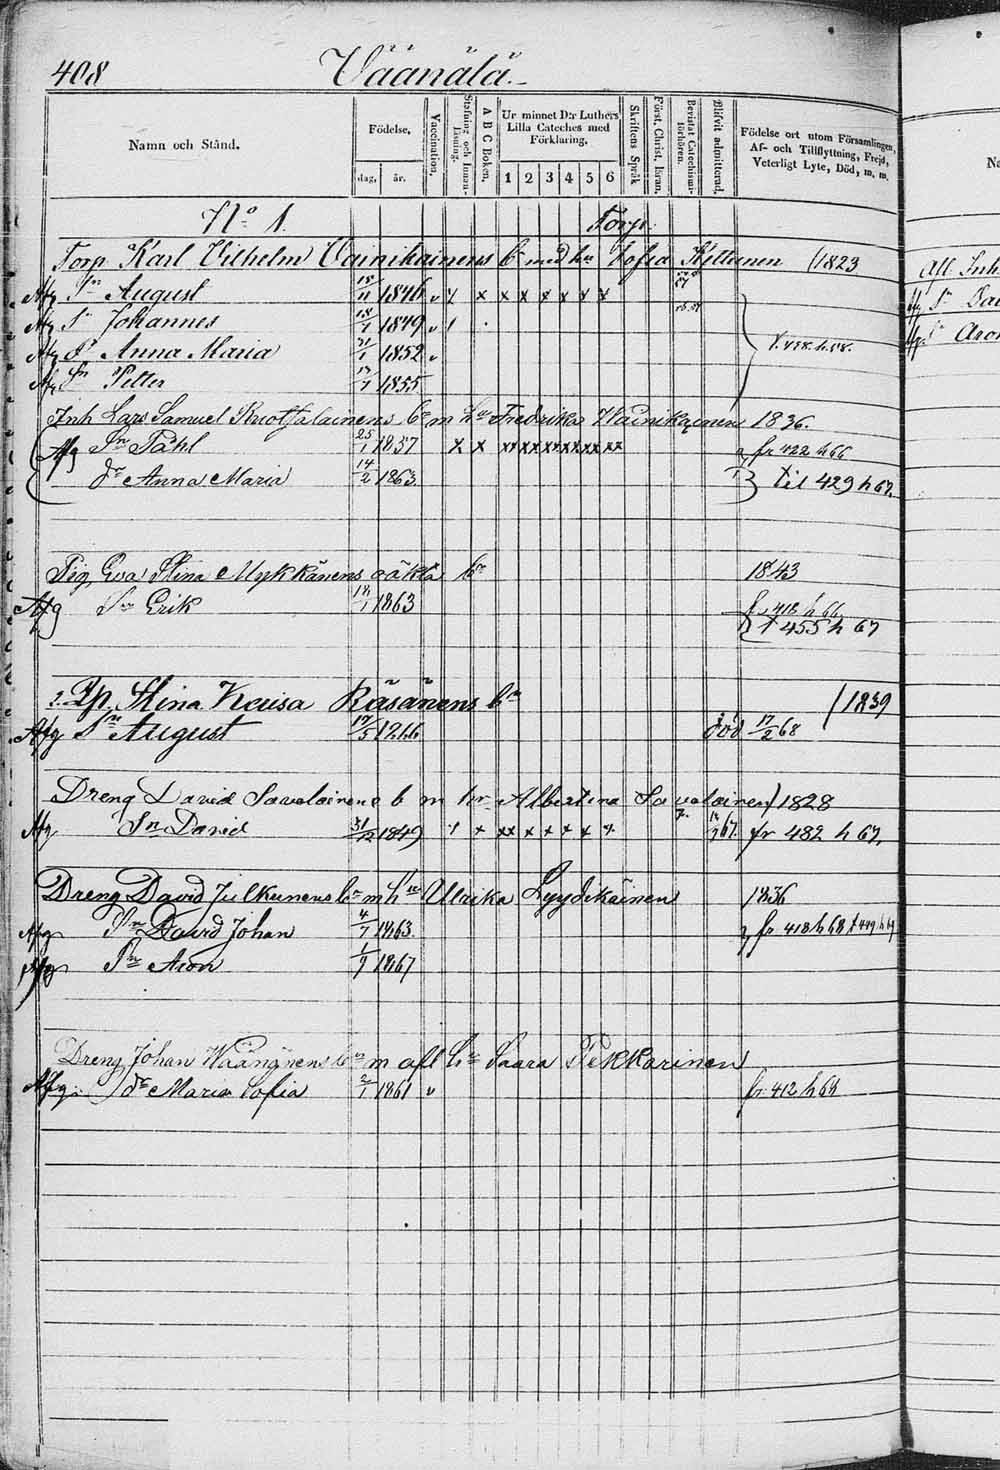 408 Väänälä.
Namn och Stånd.
Födelse,
dag, år.
Vaccination.
Stafning och Innanläsning.
A B C Boken.
Ur minnet D:r Luthers Lilla Cateches med Förklaring.
1 2 3 4 5 6
Skriftens Språk
Först. Christ. läran.
Bevistat Catechismiförhören.
Blifvit admitterad.
Födelse ort utom Församlingen, Af- och Tillflyttning, Frejd, Veterligt Lyte, Död, m. m.
No 1. Torp.
Torp. Karl Vilhelm Vainikainens bn med hu Sofia Kettunen 1823
Afg Sn August 18/11 1846 v x x x x x x x x
Afg Sn Johannes 18/1 1849 v
Afg Dr Anna Maria 21/1 1852 v
Afg Sn Petter 17/7 1855
Inh Lars Samuel Ruotsalainens bn m hu Fredrika Wainikainen 1836.
Afg Sn Påhl 25/1 1857 x x xx xx xx xx xx xx fr 422 h 66
dr Anna Maria 14/2 1863 til 429 h 67.
Pig. Eva Stina Mykkänens oäkta bn 1843
Afg Sn Erik 18/1 1863 fr 418 h 66
t 455 h 67
2. Lp. Stina Kaisa Räsänens bn 1839
Afg Sn August 17/5 1266 död 17/2 68
Dreng David Savolainens b m hu Albertina Savolainen 1828
Afg Sn David 31/12 1849 x xx x x x x x 67. fr 482 h 67.
Dreng David Julkunens bn m hu Ulrika Lyydikäinen 1836
Afg Sn David Johan 4/7 1863. fr 418 h 68 t 449 h 69
Afg Sn Aron 1/9 1867
Dreng Johan Wäänänens bn m afl hu Saara Pekkarinen
Afg. dr Maria Sofia 2/1 1861 v fr 412 h 64